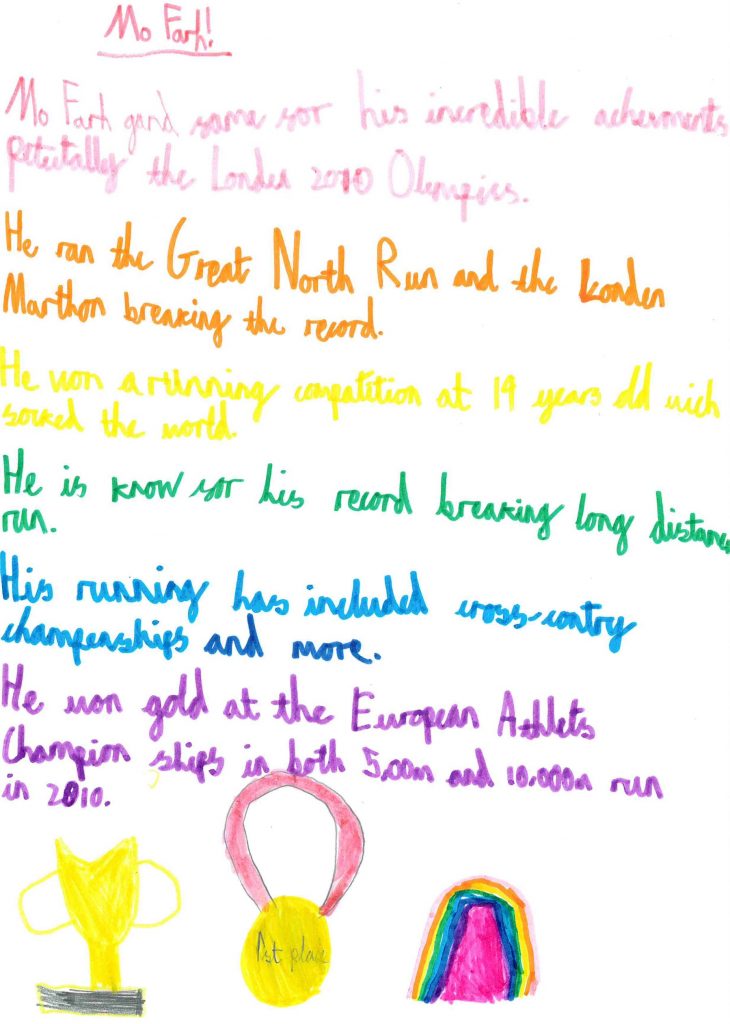 Mo Farh!
Mo Farh gand some for his incredible acherments
petectally the Londen 2010 Olempics.
He ran the Great North Run and the Londen
Marthon breaking the record.
He won a running compatition at 19 years old wich
socked the world.
He is know for his record breaking long distance
run.
His running has included cross-contry
champenships and more.
He won gold at the European Athlets
Champion ships in both 5,00m and 10,000m run
in 2010.
1st place